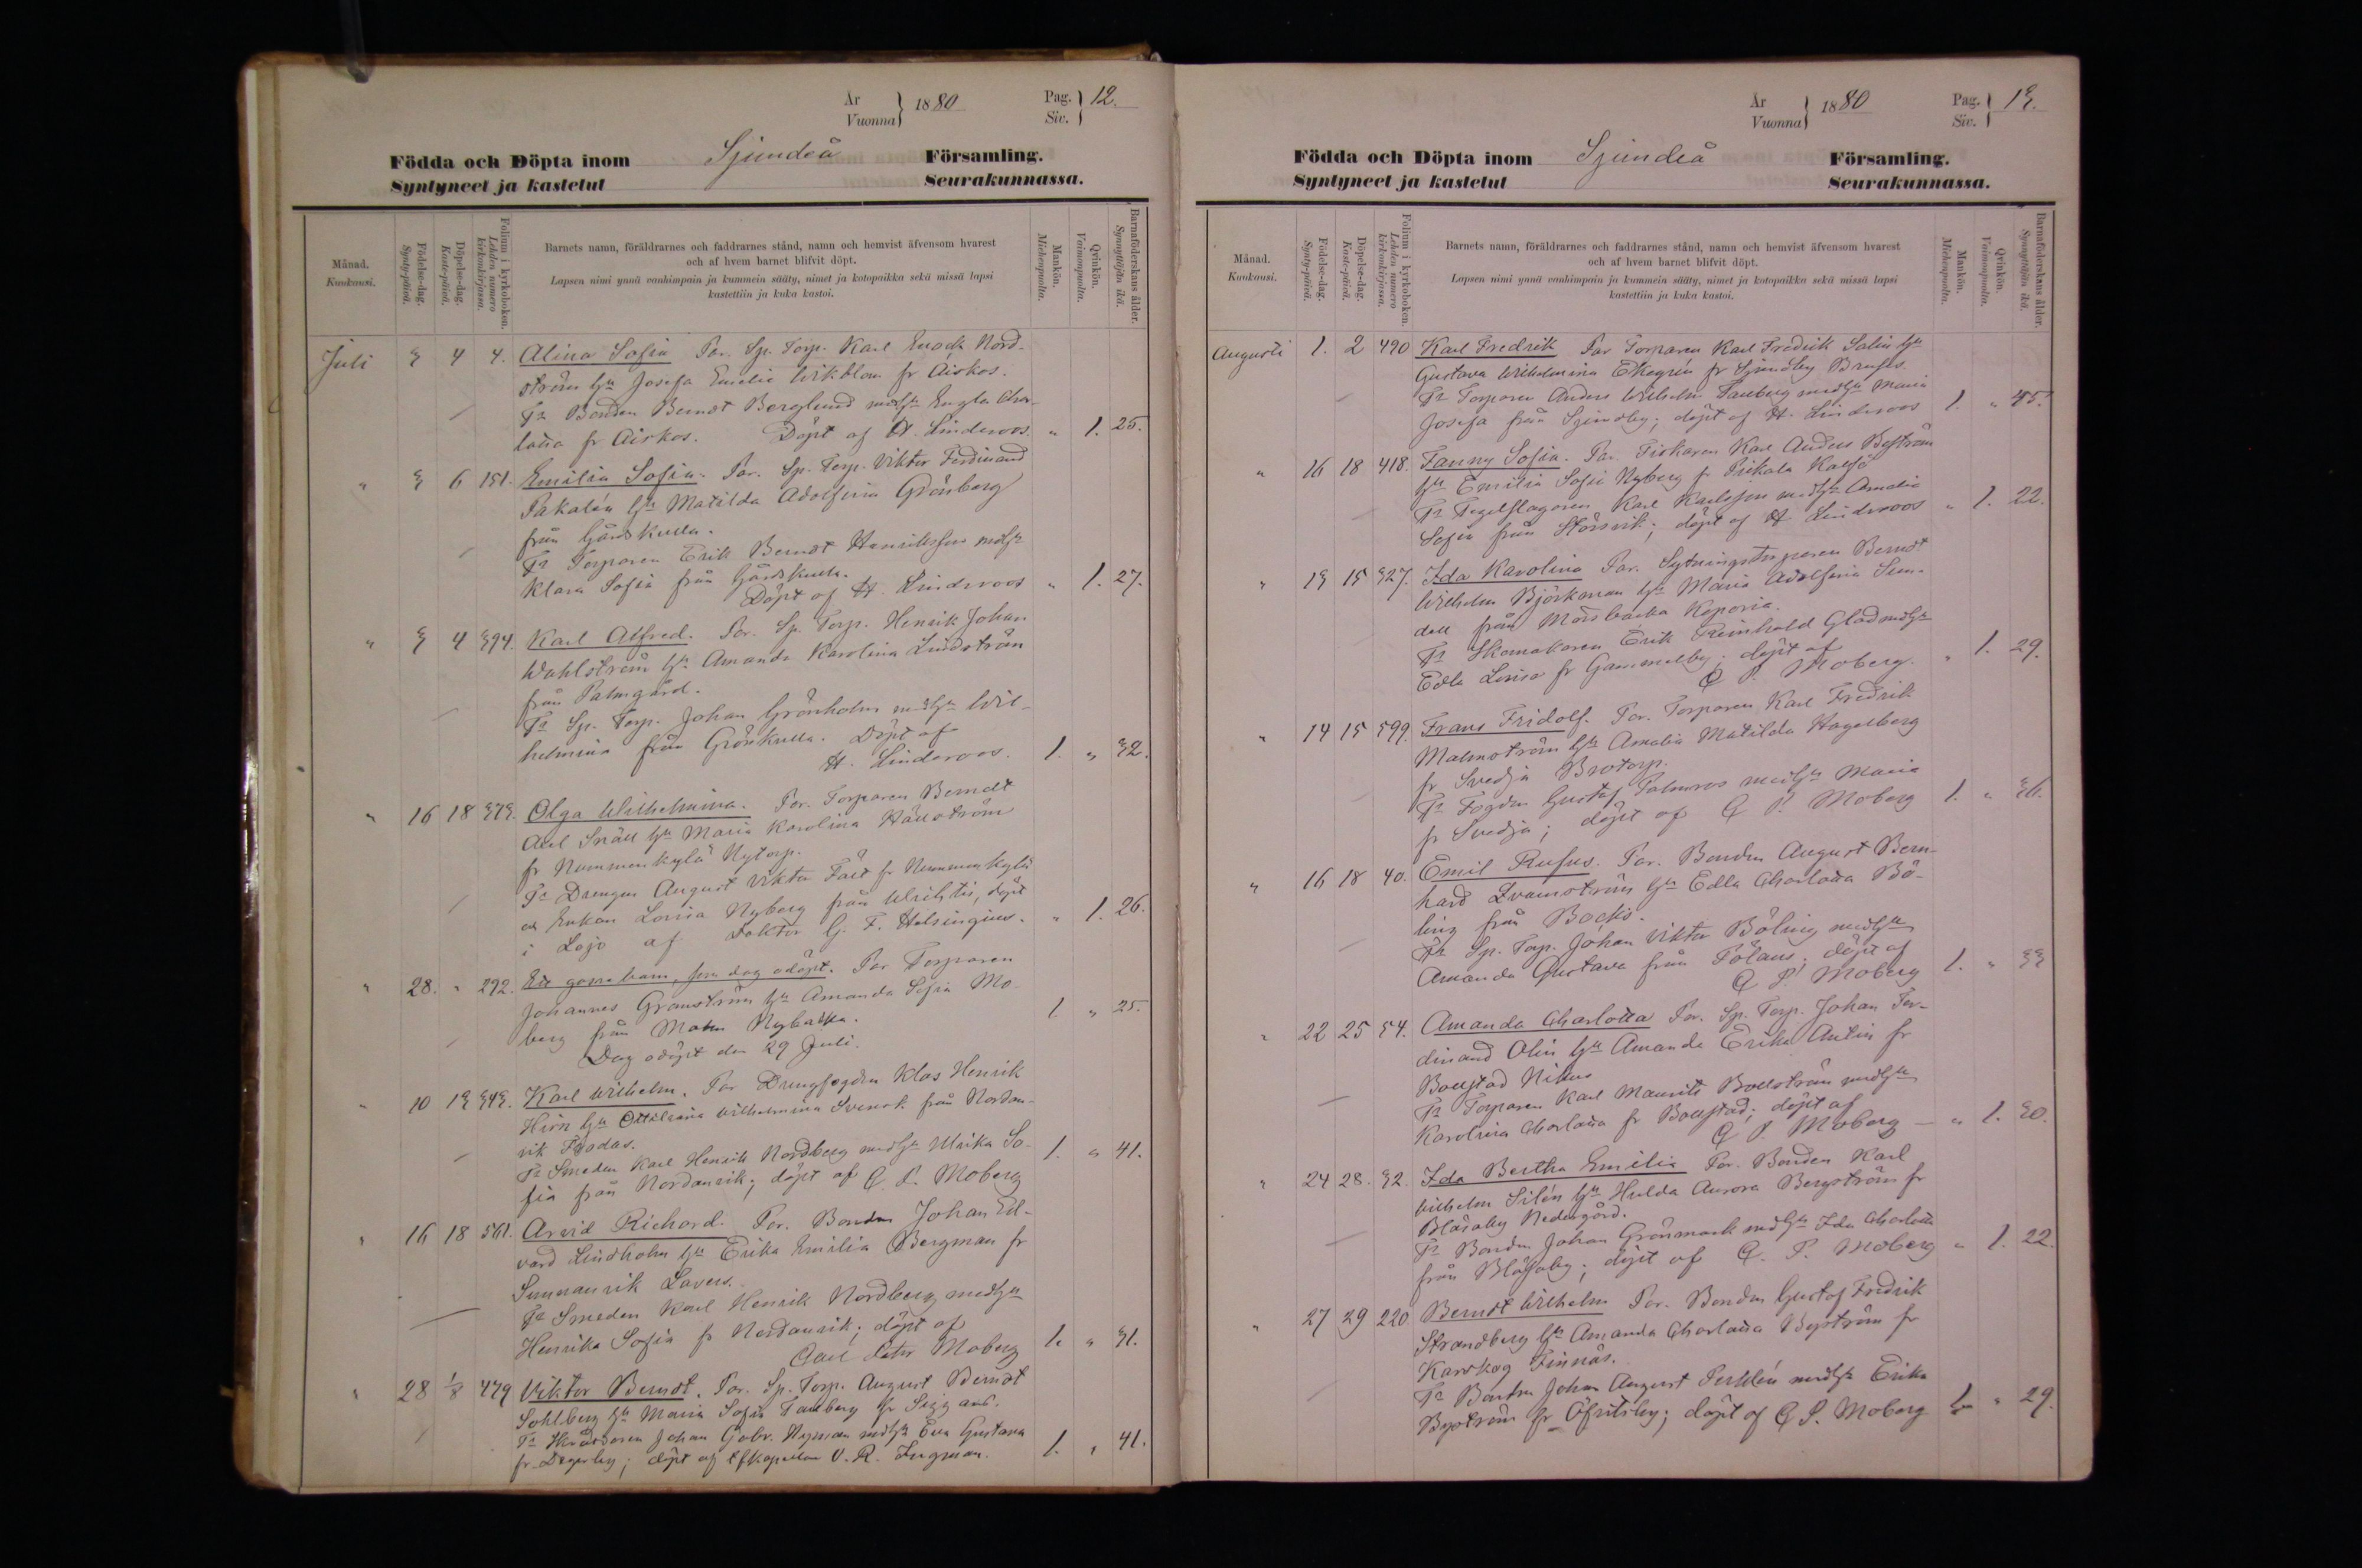 År
Vuonna } 1880
Pag.
Siv. } 12.
Födda och Döpta inom Sjundeå Församling.
Syntyneet ja kastetut Seurakunnassa.
Månad.
Kuukausi.
Födelse-dag.
Synty-päivä.
Döpelse-dag.
Kaste-päivä.
Folium i kyrkoboken.
Lehden numero
kirkonkirjassa.
Barnets namn, föräldrarnes och faddrarnes stånd, namn och hemvist äfvensom hvarest
och af hvem barnet blifvit döpt.
Lapsen nimi ynnä vanhimpain ja kummein sääty, nimet ja kotopaikka sekä missä lapsi
kastettiin ja kuka kastoi.
Mankön.
Miehenpuolta.
Qvinkön.
Vaimonpuolta.
Barnaföderskans ålder.
Synnyttäjän ikä.
Juli 3 4 4. Alina Sofia För. Sp. Torp. Karl Enock Nord-
ström hu Josefa Emelie Wikblom fr Aiskos.
Fr Bonden Berndt Berglund med hu Engla Char-
lotta fr Aiskos. Döpt af H. Linderoos. " 1. 25.
" 3 6 131. Emilia Sofia. För. Sp. Torp. Viktor Ferdinand
Pakalén hu Matilda Adolfina Grönberg
från Gårdskulla.
Fr Torparen Erik Berndt Henriksson med hu
Klara Sofia från Gårdskulla.
Döpt af H. Linderoos " 1. 27.
" 3 4 394. Karl Alfred. För. Sp. Torp. Henrik Johan
Wahlström hu Amanda Karolina Lindström
från Palmgård.
Fr Sp. Torp. Johan Grönholm med hu Wil-
helmina från Grönkulla. Döpt af
H. Linderoos. 1. " 32.
" 16 18 373. Olga Wilhelmina. För. Torparen Berndt
Axel Snäll hu Maria Karolina Hällström
fr Nummenkylä Nytorp.
Fr Drengen August Viktor Fält fr Nummenkylä
och Enkan Lovisa Nyberg från Wichtis, döpt
i Lojo af Doktor G. F. Helsingius. " 1. 26.
" 28. " 292. Ett gossebarn, som dog odöpt. För Torparen
Johannes Granström hu Amanda Sofia Mo-
berg från Malm Nybacka.
Dog odöpt den 29 Juli. 1 " 25.
" 10 13 343. Karl Wilhelm. För Drengfogden Klas Henrik
Hirn hu Ottiliana Wilhelmina Svensk från Nordan-
vik Fjodas.
Fr Smeden Karl Henrik Nordberg med hu Ulrika So-
fia från Nordanvik; döpt af C. P. Moberg 1. " 41.
" 16 18 561. Arvid Richard. För. Bonden Johan Ed-
vard Lindholm hu Erika Emilia Bergman fr
Sunnanvik Lavers.
Fr Smeden Karl Henrik Nordberg med hu
Henrika Sofia fr Nordanvik; döpt af
Carl Peter Moberg 1. " 31.
" 28 1/8 479 Viktor Berndt. För. Sp. Torp. August Berndt
Sohlberg hu Maria Sofia Tallberg fr Sigg ans.
Fr Skräddaren Johan Gabr. Nyman med hu Eva Gustava
fr Degerby; döpt af kapellan V. R. Ingman. 1. " 41.
År
Vuonna } 1880
Pag.
Siv. } 13.
Födda och Döpta inom Sjundeå Församling.
Syntyneet ja kastetut Seurakunnassa.
Månad.
Kuukausi.
Födelse-dag.
Synty-päivä.
Döpelse-dag.
Kaste-päivä.
Folium i kyrkoboken.
Lehden numero
kirkonkirjassa.
Barnets namn, föräldrarnes och faddrarnes stånd, namn och hemvist äfvensom hvarest
och af hvem barnet blifvit döpt.
Lapsen nimi ynnä vanhimpain ja kummein sääty, nimet ja kotopaikka sekä missä lapsi
kastettiin ja kuka kastoi.
Mankön.
Miehenpuolta.
Qvinkön.
Vaimonpuolta.
Barnaföderskans ålder.
Synnyttäjän ikä.
Augusti 1. 2 490 Karl Fredrik För Torparen Karl Fredrik Salin hu
Gustava Wilhelmina Ekegrén fr Sjundby
Fr Torparen Anders Wilhelm Tauberg med hu Maria
Josefa från Sjundby; döpt af H. Linderoos 1. " 45.
" 16 18 418. Fanny Sofia. För. Fiskaren Karl Anders Boström
hu Emilia Sofia Nyberg fr Pickala Kalfö
Fr Tegelslagaren Karl Karlsson med hu Amalia
Sofia från Störsvik; döpt af H. Linderoos " 1. 22.
" 13 15 327. Ida Karolina För. Sytningstorparen Berndt
Wilhelm Björkman hu Maria Adolfina Sun-
dell från Mörsbacka Koporia.
Fr Skomakaren Erik Reinhold Glad med hu
Edla Lovisa fr Gammelby; döpt af
C P. Moberg. " 1. 29.
" 14 15 599. Frans Fridolf. För. Torparen Karl Fredrik
Malmström hu Amalia Matilda Hagelberg
fr Svedja Brotorp.
Fr Fogden Gustaf Palmros med hu Maria
fr Svedja; döpt af C P. Moberg 1. " 36.
" 16 18 40. Emil Rufus. För. Bonden August Bern-
hard Evamström hu Edla Charlotta Bö-
ling från Bäcks.
Fr Sp. Torp. Johan Viktor Böling med hu
Amanda Gustava från Pölans; döpt af
C P. Moberg 1. " 33
" 22 25 54. Amanda Charlotta För. Sp. Torp. Johan Fer-
dinand Olin hu Amanda Erika Antin fr
Bollstad Nikus
Fr Torparen Karl Maurits Bollström med hu
Karolina Charlotta fr Bollstad; döpt af
C P. Moberg — " 1. 30.
" 24 28. 32. Ida Bertha Emilia För. Bonden Karl
Wilhelm Silén hu Hulda Aurora Bergström fr
Blåsaby Nedergård.
Fr Bonden Johan Grönmark med hu Ida Charlotta
från Blåsaby; döpt af C. P. Moberg " 1. 22.
" 27 29 220 Berndt Wilhelm För. Bonden Gustaf Fredrik
Strandberg hu Amanda Charlotta Byström fr
Karskog Finnäs.
Fr Bonden Johan August Perklén med hu Erika
Byström fr Öfvitsby; döpt af C P. Moberg 1 " 29.